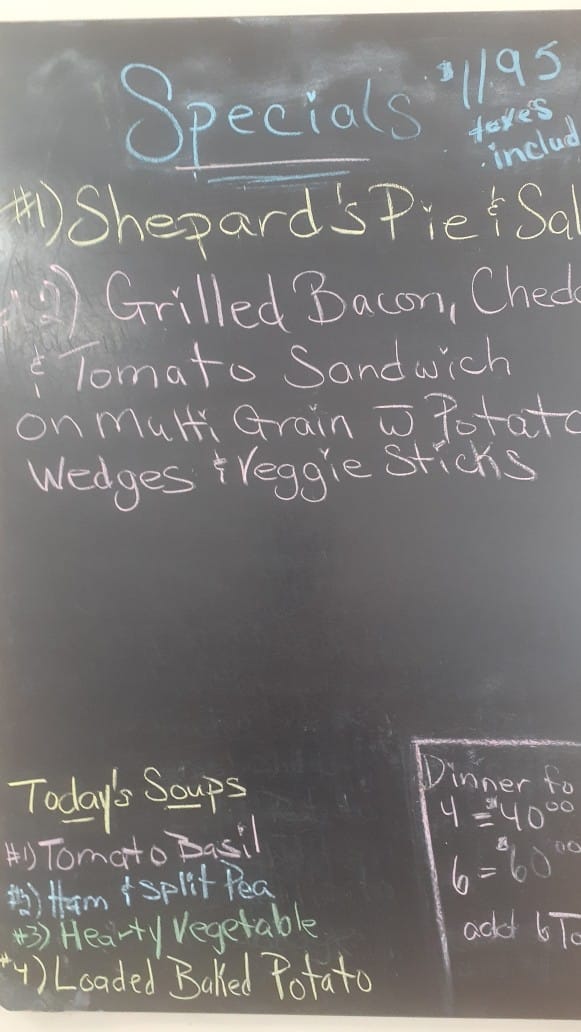 Specials $11.95
taxes
includ
#1) Shepard's Pie & Sal
#2) Grilled Bacon, Chedd
& Tomato Sandwich
on Multi Grain w Potato
Wedges & Veggie Sticks
Today's Soups
#1) Tomato Basil
#2) Ham & split Pea
#3) Hearty Vegetable
#4) Loaded Baked Potato
Dinner fo
4 = $40.00
6 = $60.00
add 6 To